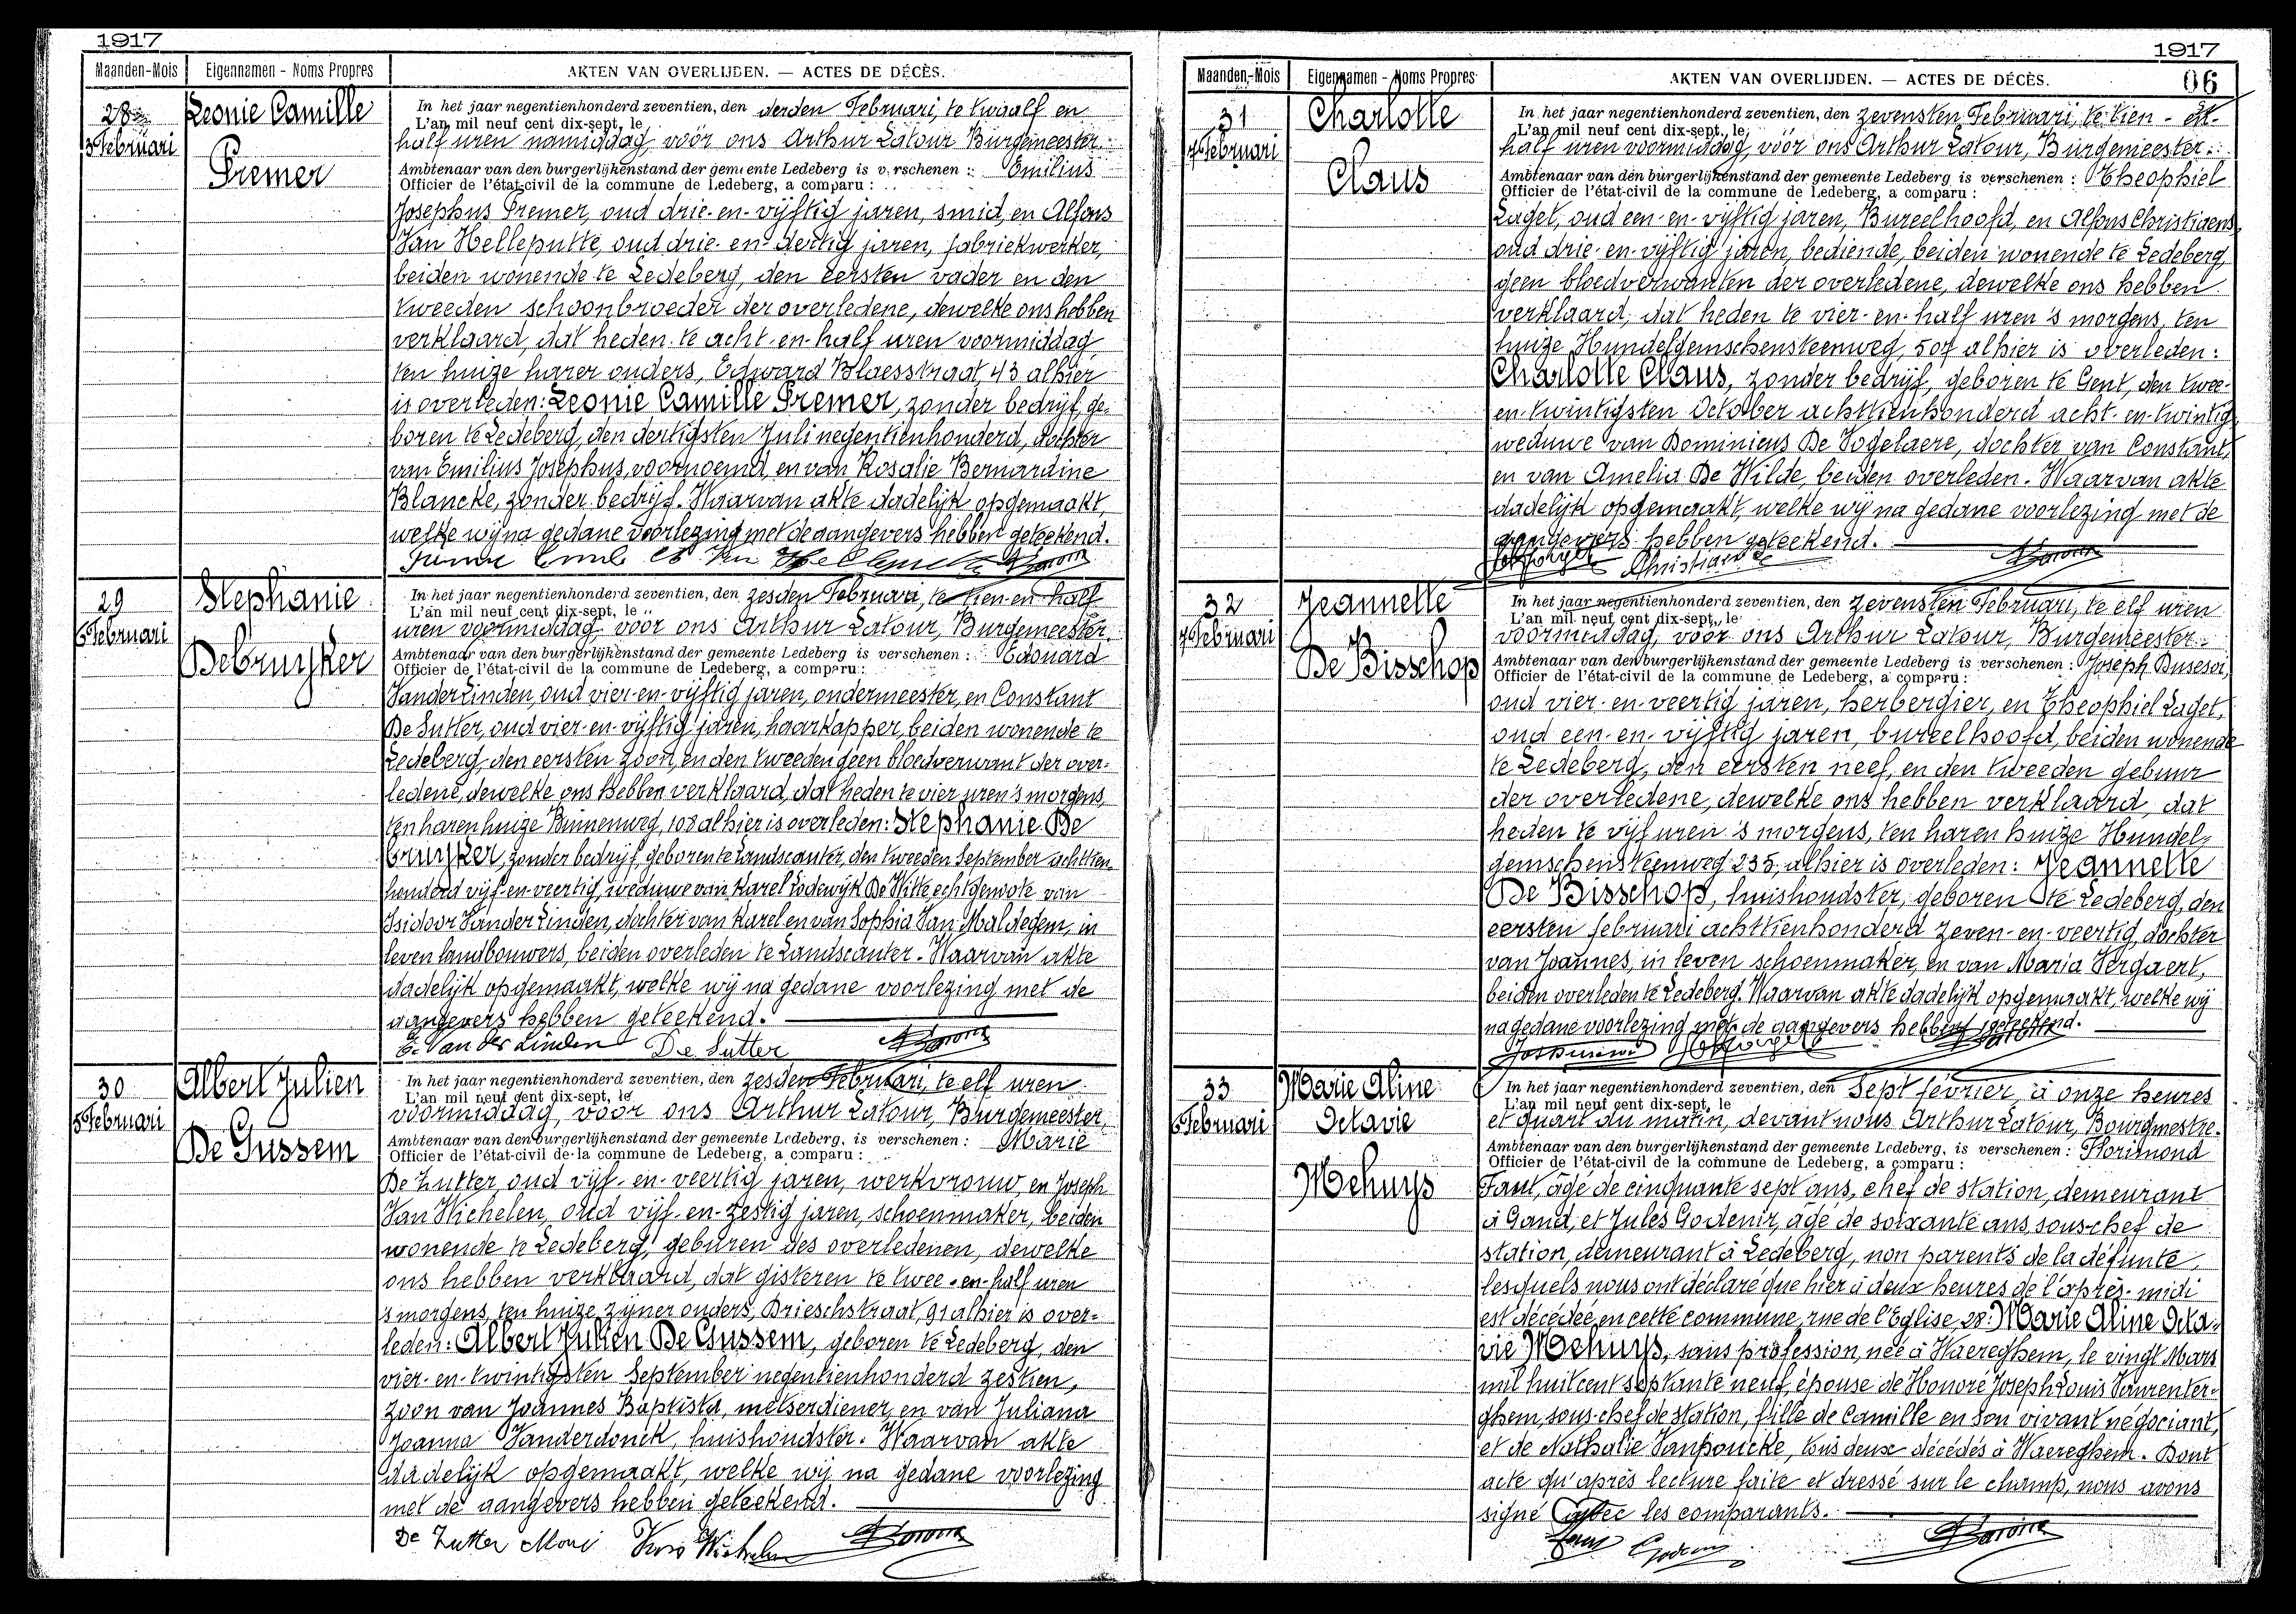 1917
Maanden-Mois Eigennamen - Noms Propres AKTEN VAN OVERLIJDEN. — ACTES DE DÉCÈS.
28
3 Februari
Leonie Camille
Premer
In het jaar negentienhonderd zeventien, den derden Februari, te twaalf en
L'an mil neuf cent dix-sept, le
half uren namiddag vóór ons Arthur Latour Burgemeester
Ambtenaar van den burgerlijkenstand der gemeente Ledeberg is verschenen : Emilius
Officier de l'état-civil de la commune de Ledeberg, a comparu :
Josephus Premer, oud drie-en-vijftig jaren, smid, en Alfons
Van Helleputte, oud drie-en-dertig jaren, fabriekwerker,
beiden wonende te Ledeberg, den eersten vader en den
tweeden schoonbroeder der overledene, dewelke ons hebben
verklaard, dat heden te acht-en-half uren voormiddag,
ten huize harer ouders, Edward Blaesstraat, 43 alhier
is overleden: Leonie Camille Premer, zonder bedrijf, ge-
boren te Ledeberg, den dertigsten Juli negentienhonderd, dochter
van Emilius Josephus, voornoemd, en van Rosalie Bernardine
Blancke, zonder bedrijf. Waarvan akte dadelijk opgemaakt,
welke wij na gedane voorlezing met de aangevers hebben geteekend.
29
6 Februari
Stephanie
Debruyker
In het jaar negentienhonderd zeventien, den zesden Februari, te tien-en-half
L'an mil neuf cent dix-sept, le
uren voormiddag vóór ons Arthur Latour, Burgemeester.
Ambtenaar van den burgerlijkenstand der gemeente Ledeberg is verschenen : Edouard
Officier de l'état-civil de la commune de Ledeberg, a comparu :
Vander Linden, oud vier-en-vijftig jaren, ondermeester, en Constant
De Sutter, oud vier-en-vijftig jaren, haarkapper, beiden wonende te
Ledeberg, den eersten zoon, en den tweeden geen bloedverwant der over-
ledene, dewelke ons hebben verklaard, dat heden te vier uren 's morgens,
ten haren huize Binnenweg, 108 alhier is overleden: Stephanie De
bruyker, zonder bedrijf, geboren te Landscauter, den tweeden September achttien-
honderd vijf-en-veertig, weduwe van Karel Lodewijk De Witte echtgenoote van
Isidoor Vander Linden, dochter van Karel en van Sophia Van Maldegem, in
leven landbouwers, beiden overleden te Landscauter. Waarvan akte
dadelijk opgemaakt, welke wij na gedane voorlezing met de
aangevers hebben geteekend.
E. Van der Linden De Sutter
30
5 Februari
Albert Julien
De Gussem
In het jaar negentienhonderd zeventien, den zesden Februari, te elf uren
L'an mil neuf cent dix-sept, le
voormiddag, vóór ons Arthur Latour, Burgemeester,
Ambtenaar van den burgerlijkenstand der gemeente Ledeberg, is verschenen : Marie
Officier de l'état-civil de la commune de Ledeberg, a comparu :
De Zutter, oud vijf-en-veertig jaren, werkvrouw, en Joseph
Van Wichelen, oud vijf-en-zestig jaren, schoenmaker, beiden
wonende te Ledeberg, geburen des overledenen, dewelke
ons hebben verklaard, dat gisteren te twee-en-half uren
's morgens, ten huize zijner ouders, Drieschstraat, 91 alhier is over-
leden: Albert Julien De Gussem, geboren te Ledeberg, den
vier-en-twintigsten September negentienhonderd zestien,
zoon van Joannes Baptista, metserdiener, en van Juliana
Joanna Vanderdonck, huishoudster. Waarvan akte
dadelijk opgemaakt, welke wij na gedane voorlezing
met de aangevers hebben geteekend.
De Zutter
1917
Maanden-Mois Eigennamen - Noms Propres AKTEN VAN OVERLIJDEN. — ACTES DE DÉCÈS. 06
31
7 Februari
Charlotte
Claus
In het jaar negentienhonderd zeventien, den zevensten Februari, te tien - en-
L'an mil neuf cent dix-sept, le
half uren voormiddag, vóór ons Arthur Latour, Burgemeester.
Ambtenaar van den burgerlijkenstand der gemeente Ledeberg is verschenen : Theophiel
Officier de l'état-civil de la commune de Ledeberg, a comparu :
Laget, oud een-en-vijftig jaren, Bureelhoofd, en Alfons Christiaens,
oud drie-en-vijftig jaren, bediende, beiden wonende te Ledeberg,
geen bloedverwanten der overledene, dewelke ons hebben
verklaard, dat heden te vier-en-half uren 's morgens, ten
huize Hundelgemschensteenweg, 507 alhier is overleden:
Charlotte Claus, zonder bedrijf, geboren te Gent, den twee-
en-twintigsten October achttienhonderd acht-en-twintig,
weduwe van Dominicus De Vogelaere, dochter van Constant,
en van Amelia De Wilde, beiden overleden. Waarvan akte
dadelijk opgemaakt, welke wij na gedane voorlezing met de
aangevers hebben geteekend.
Christiaens
32
7 Februari
Jeannette
De Bisschop
In het jaar negentienhonderd zeventien, den zevensten Februari, te elf uren
L'an mil neuf cent dix-sept, le
voormiddag, vóór ons Arthur Latour, Burgemeester.
Ambtenaar van den burgerlijkenstand der gemeente Ledeberg is verschenen : Joseph Busesoi,
Officier de l'état-civil de la commune de Ledeberg, a comparu :
oud vier-en-veertig jaren, herbergier, en Theophiel Laget,
oud een-en-vijftig jaren, bureelhoofd, beiden wonende
te Ledeberg, den eersten neef, en den tweeden gebuur
der overledene, dewelke ons hebben verklaard, dat
heden te vijf uren 's morgens, ten haren huize Hundel-
gemschensteenweg 235, alhier is overleden: Jeannette
De Bisschop, huishoudster, geboren te Ledeberg, den
eersten februari achttienhonderd zeven-en-veertig, dochter
van Joannes, in leven schoenmaker, en van Maria Vergaert,
beiden overleden te Ledeberg. Waarvan akte dadelijk opgemaakt, welke wij
na gedane voorlezing met de aangevers hebben geteekend.
33
6 Februari
Marie Aline
Octavie
Mehuys
In het jaar negentienhonderd zeventien, den Sept février, à onze heures
L'an mil neuf cent dix-sept, le
et quart du matin, devant nous Arthur Latour, Bourgmestre.
Ambtenaar van den burgerlijkenstand der gemeente Ledeberg, is verschenen : Florimond
Officier de l'état-civil de la commune de Ledeberg, a comparu :
Faut, âgé de cinquante sept ans, chef de station, demeurant
à Gand, et Jules Godenir, âgé de soixante ans, sous-chef de
station, demeurant à Ledeberg, non parents de la défunte,
lesquels nous ont déclaré que hier à deux heures de l'après-midi
est décédée en cette commune, rue de l'Eglise, 28: Marie Aline Octa-
vie Mehuys, sans profession, née à Waereghem, le vingt Mars
mil huit cent septante neuf, épouse de Honoré Joseph Louis Vanrenter-
ghem, sous-chef de station, fille de Camille en son vivant négociant,
et de Nathalie Vanpoucke, tous deux décédés à Waereghem. Dont
acte qu'après lecture faite et dressé sur le champ, nous avons
signé avec les comparants.